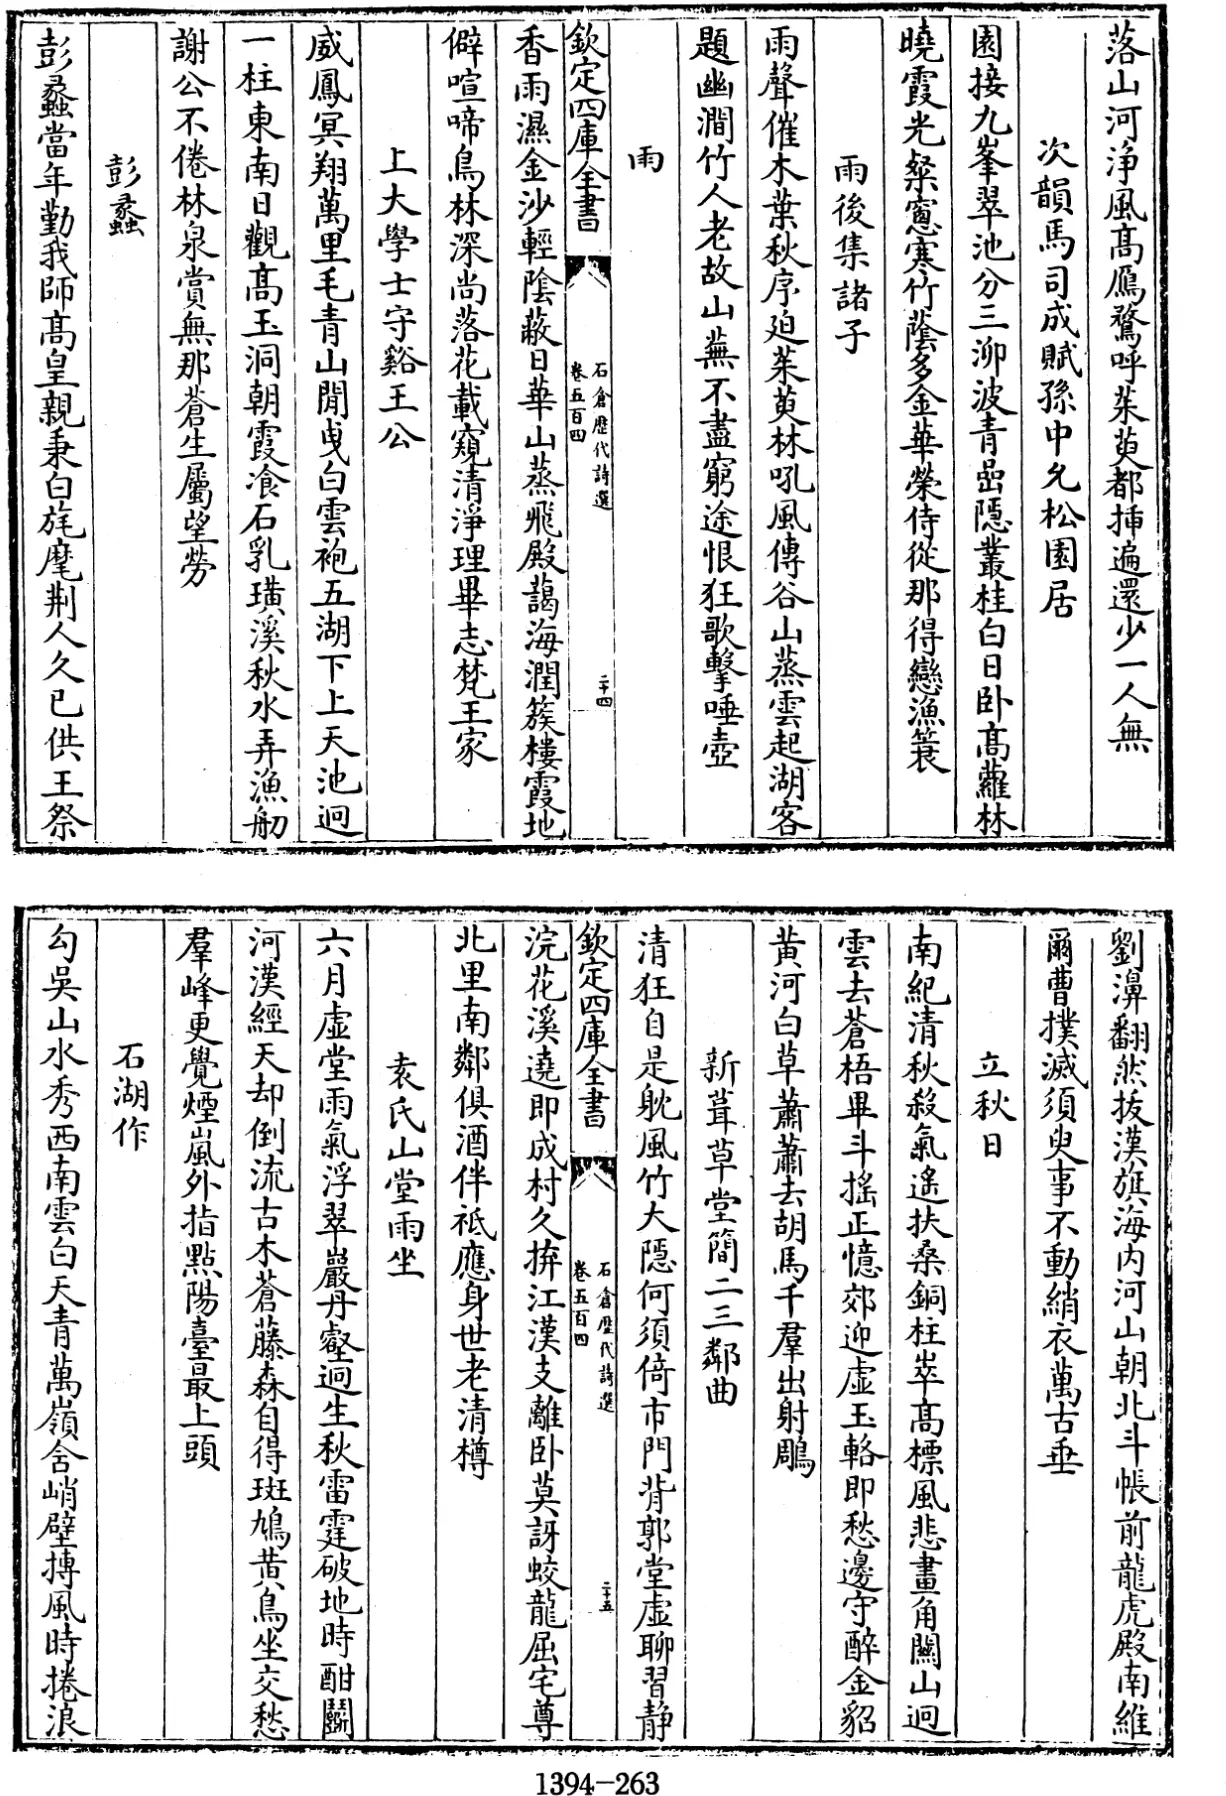 落山河淨風髙鴈鶩呼茱萸都揷遍還少一人無
次韻馬司成賦孫中允松園居
園接九峯翠池分三泖波青嵒隠叢桂白日卧髙蘿林
曉霞光粲窻寒竹蔭多金華榮侍從那得戀漁簑
雨後集諸子
雨聲催木葉秋序廹茱萸林吼風傳谷山蒸雲起湖客
題幽澗竹人老故山蕪不盡窮途恨狂歌擊唾壺
雨
欽定四庫全書
石倉歴代詩選
卷五百四
二十四
香雨濕金沙輕隂蔽日華山蒸飛殿藹海潤簇樓霞地
僻喧啼鳥林深尚落花載窺清淨理畢志梵王家
上大學士守谿王公
威鳳冥翔萬里毛青山閒曵白雲袍五湖下上天池迥
一柱東南日觀髙玉洞朝霞飡石乳璜溪秋水弄漁舠
謝公不倦林泉賞無那蒼生屬望勞
彭蠡
彭蠡當年勤我師髙皇親秉白旄麾荆人久已供王祭
劉濞翻然拔漢旗海内河山朝北斗帳前龍虎殿南維
爾曹撲滅須臾事不動綃衣萬古垂
立秋日
南紀清秋殺氣遙扶桑銅柱崒髙標風悲畫角闗山迥
雲去蒼梧畢斗揺正憶郊迎虛玉輅即愁邊守醉金貂
黄河白草蕭蕭去胡馬千羣出射鵰
新葺草堂簡二三鄰曲
清狂自是躭風竹大隠何須倚市門背郭堂虛聊習静
欽定四庫全書
石倉歴代詩選
卷五百四
二十五
浣花溪遶即成村久拚江漢支離卧莫訝蛟龍屈宅尊
北里南鄰俱酒伴祗應身世老清樽
袁氏山堂雨坐
六月虛堂雨氣浮翠巖丹壑迥生秋雷霆破地時酣鬭
河漢經天却倒流古木蒼藤森自得斑鳩黄鳥坐交愁
羣峰更覺煙嵐外指點陽臺最上頭
石湖作
勾吳山水秀西南雲白天青萬嶺含峭壁摶風時捲浪
1394-263